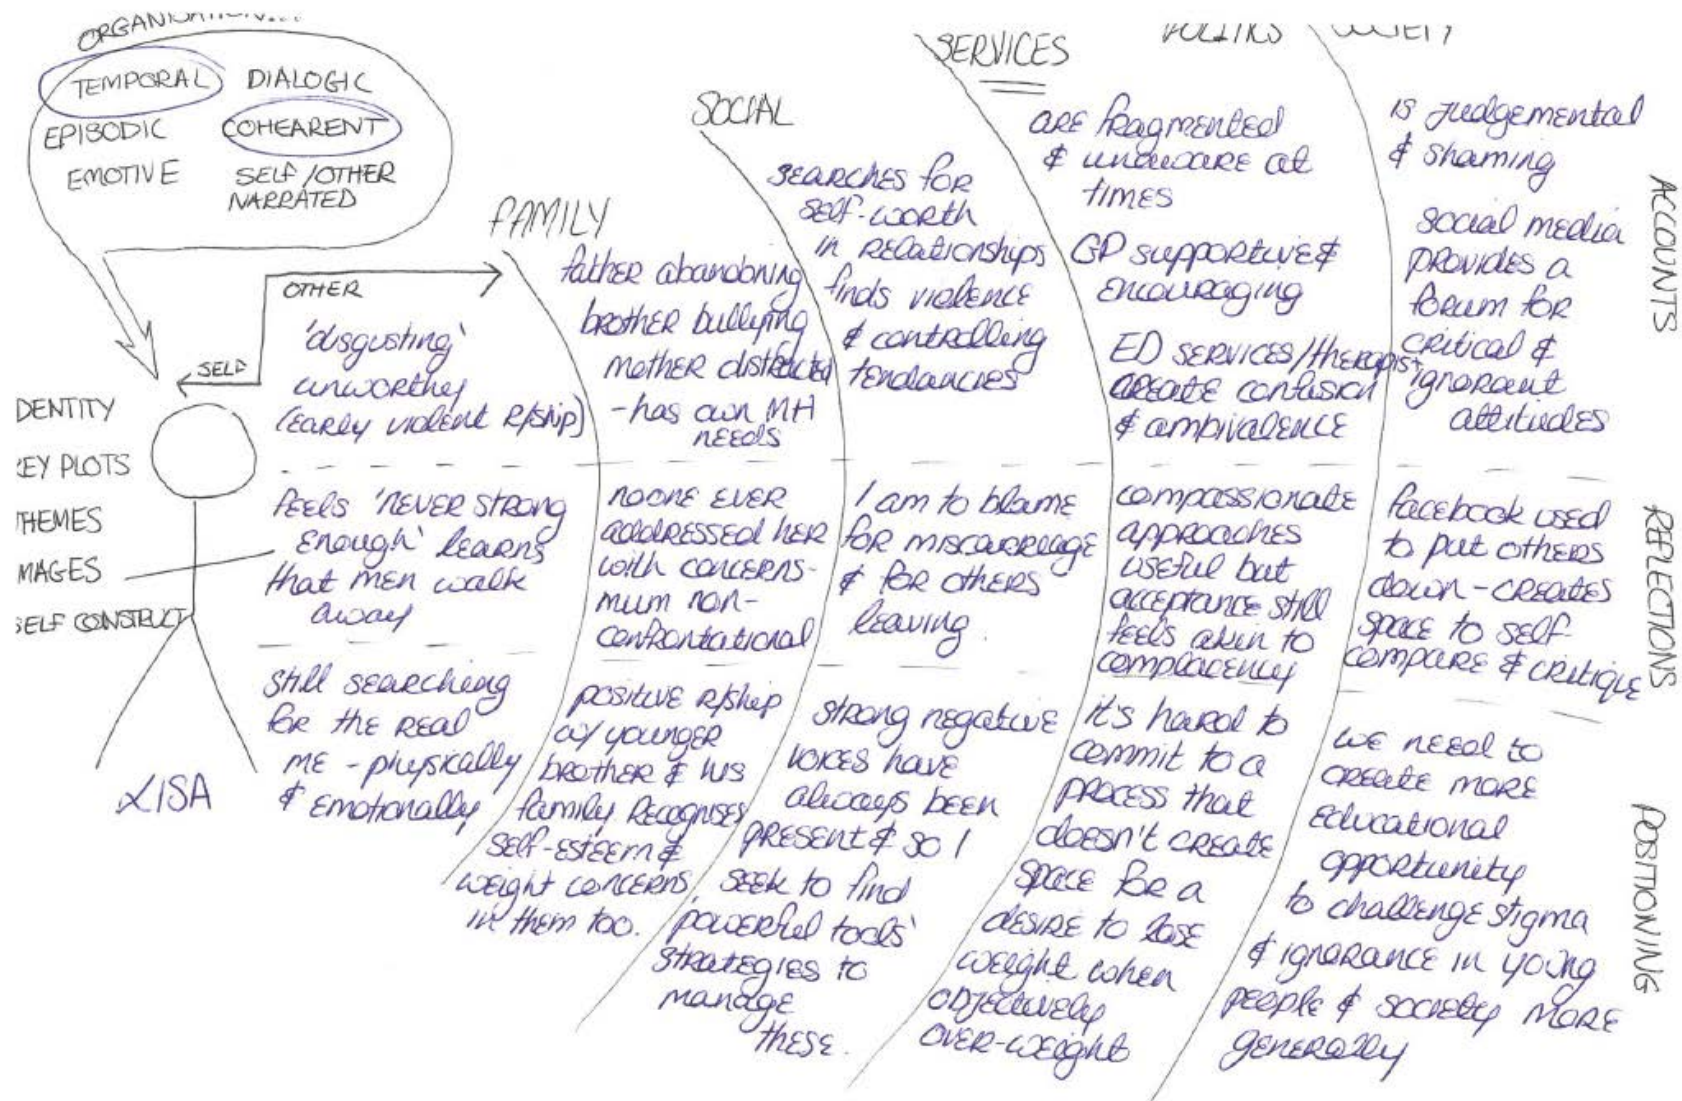 ORGANISATION...
TEMPORAL
DIALOGIC
EPISODIC
COHEARENT
EMOTIVE
SELF/OTHER
NARRATED
OTHER
SELF
DENTITY
EY PLOTS
THEMES
MAGES
SELF CONSTRUCT
LISA
'disgusting'
unworthy
(early violent R/ship)
feels 'never strong
enough' learns
that men walk
away
Still searching
for the real
me - physically
& emotionally
FAMILY
father abandoning
brother bullying
mother distracted
- has own MH
needs
noone ever
addressed her
with concerns-
mum non-
confrontational
positive r/ship
w/ younger
brother & his
family Recognises
self-esteem &
weight concerns
in them too.
SOCIAL
searches for
self-worth
in relationships
finds violence
& controlling
tendancies
I am to blame
for miscarriage
& for others
leaving.
strong negative
voices have
always been
present & so I
seek to find
'powerful tools'
strategies to
manage
these.
SERVICES
are fragmented
& unaware at
times
GP supportive &
encouraging
ED services/therapist
create confusion
& ambivalence
compassionate
approaches
useful but
acceptance still
feels akin to
complacency
it's hard to
commit to a
process that
doesn't create
space for a
desire to lose
weight when
objectively
over-weight
POLITICS
SOCIETY
is judgemental
& shaming
social media
provides a
forum for
critical &
ignorant
attitudes
facebook used
to put others
down - creates
space to self-
compare & critique
we need to
create more
educational
opportunity
to challenge stigma
& ignorance in young
people & society more
generally
ACCOUNTS
REFLECTIONS
POSITIONING